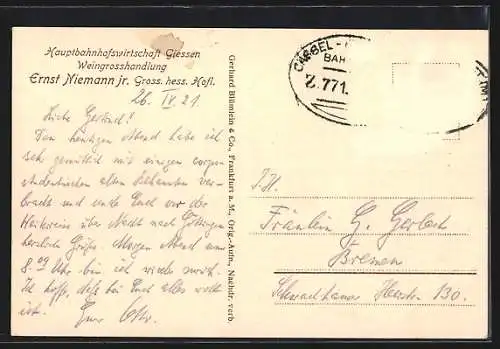 Hauptbahnhofswirtschaft Giessen
Weingrosshandlung
Ernst Niemann jr. Gross. hess. Hofl.
26. IV. 21
Liebe Gertrud!
Den heutigen Abend habe ich
sehr gemütlich mit einigen corps
studentischen alten Bekannten ver-
bracht und
über Nacht nach Göttingen
herzliche Grüße. Morgen Abend
8.09 Uhr bin ich wieder zurück.
Ich hoffe, daß bei Euch alles wohl
ist.
Gerhard Blümlein & Co., Frankfurt a. M., Orig.-Aufn., Nachdr. verb.
CASSEL -
BAH
Z.771.
Fräulein G. Gerlach
Bremen
Schwachhauser Heerstr. 130.